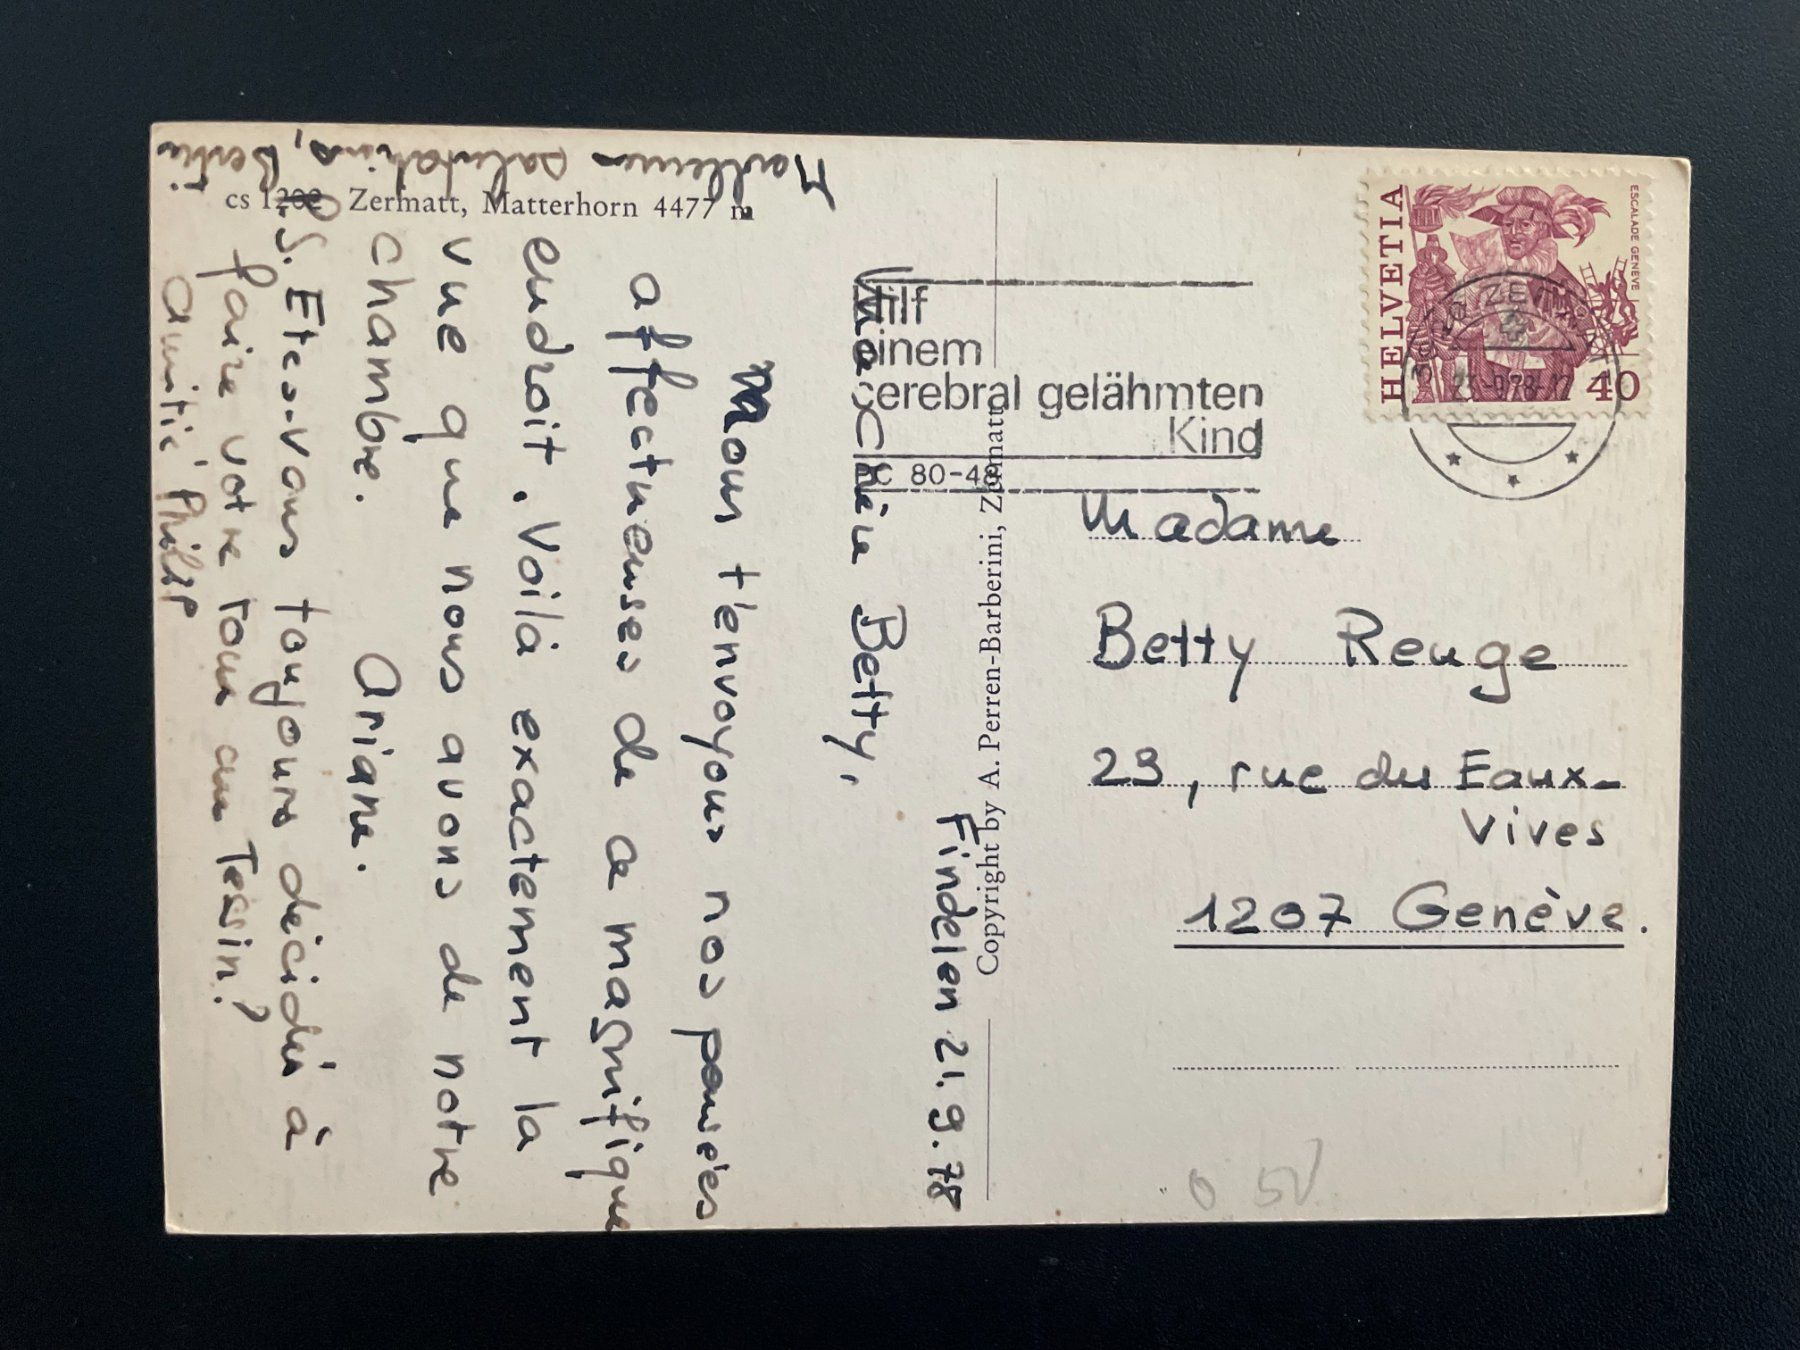 cs 1202 Zermatt, Matterhorn 4477 m
Findelen 21.9.78
Ma Chère Betty,
Nous t'envoyons nos pensées
affectueuses de ce magnifique
endroit. Voilà exactement la
vue que nous avons de notre
chambre.
Ariane.
P.S. Etes-vous toujours décidés à
faire votre tour au Tessin?
amitié Philip
salutations, Bertie
Copyright by A. Perren-Barberini, Zermatt
Hilf
einem
cerebral gelähmten
Kind
PC 80-48
HELVETIA
ESCALADE GENÈVE
40
3920 ZERMATT
Madame
Betty Reuge
29, rue des Eaux-
Vives
1207 Genève.